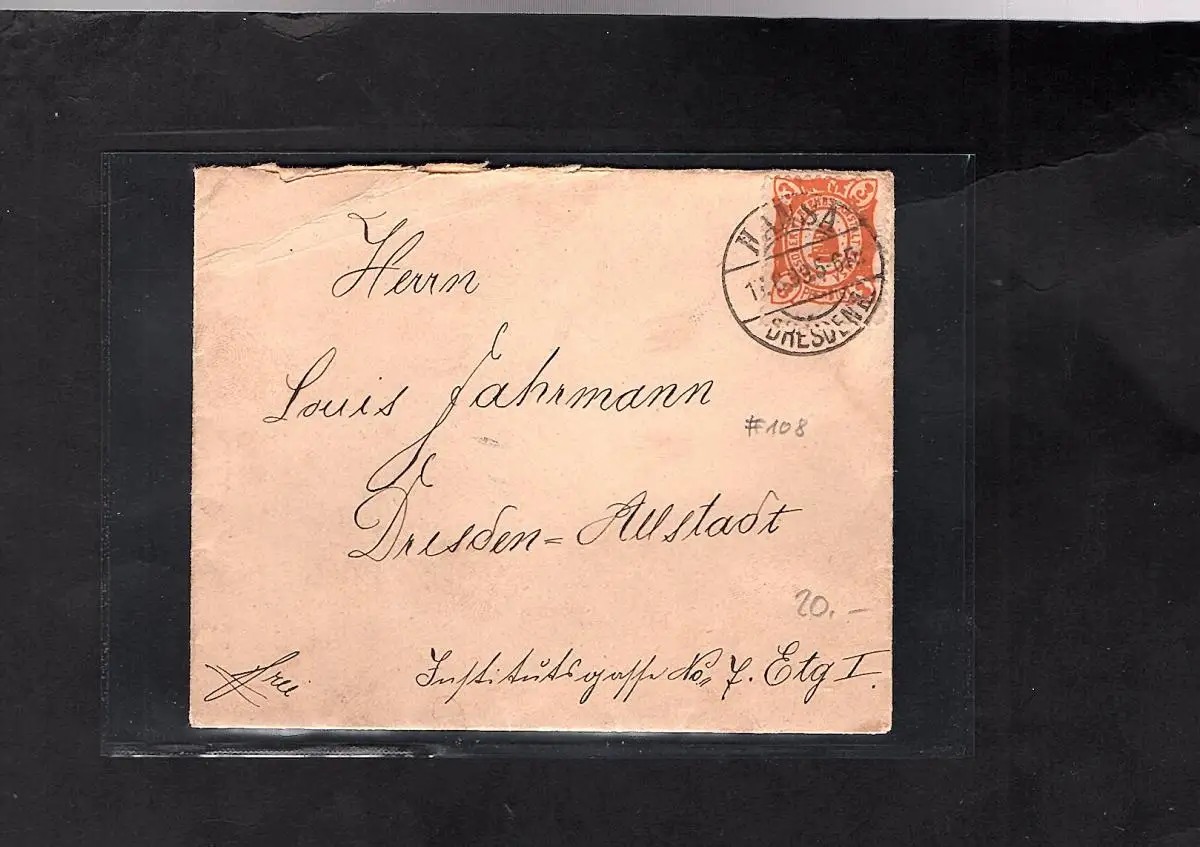 3
HANSA
DRESDEN
Herrn
Louis Fahrmann
#108
Dresden=Altstadt
20.–
frei
Institutsgasse No. 7. Etg I.